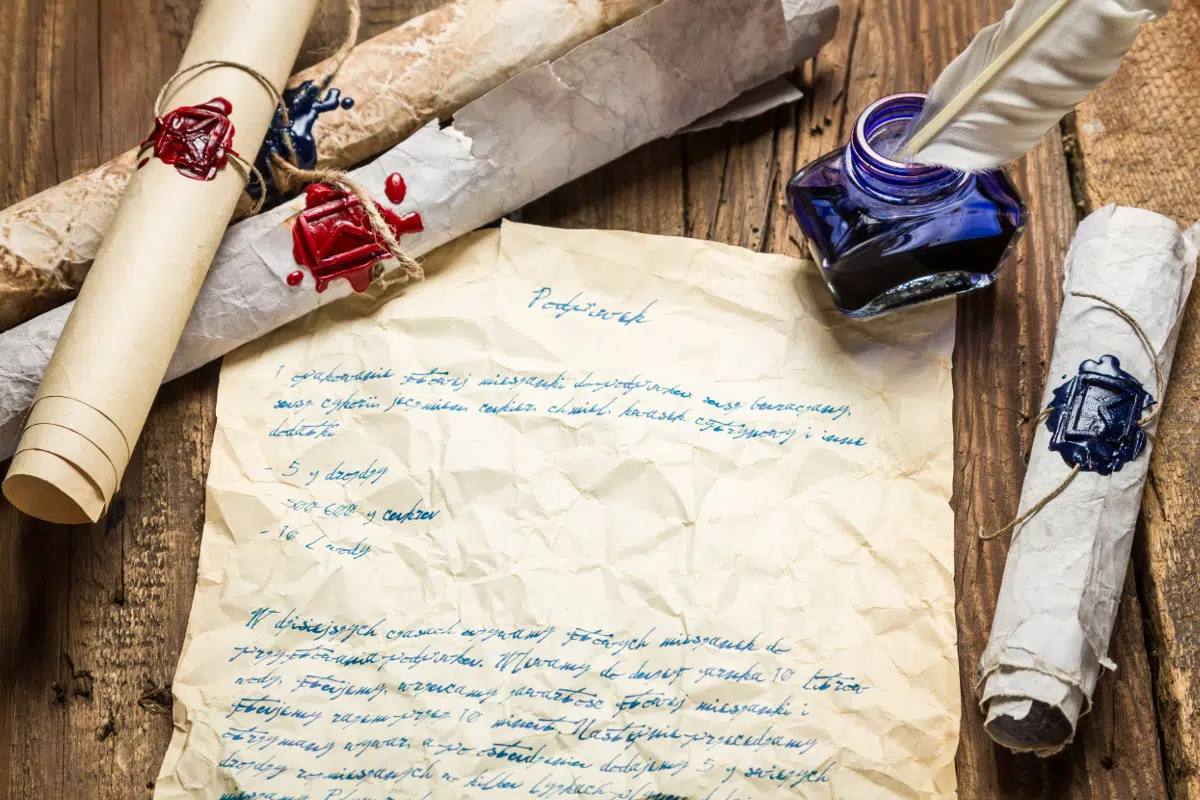 Podpiwek
1 opakowanie gotowej mieszanki do podpiwku
cykorii jęczmień, cukier, chmiel, kwasek cytrynowy i inne
dodatki
- 5 g drożdży
500-600 g cukru
- 10 L wody
W dzisiejszych czasach używamy gotowych mieszanek do
przygotowania podpiwku. Wlewamy do dużego garnka 10 litrów
wody. Gotujemy, wrzucamy zawartość gotowej mieszanki i
gotujemy razem przez 10 minut. Następnie przecedzamy
otrzymany wywar, a po ostudzeniu dodajemy 5 g świeżych
drożdży rozmieszanych w kilku łyżkach